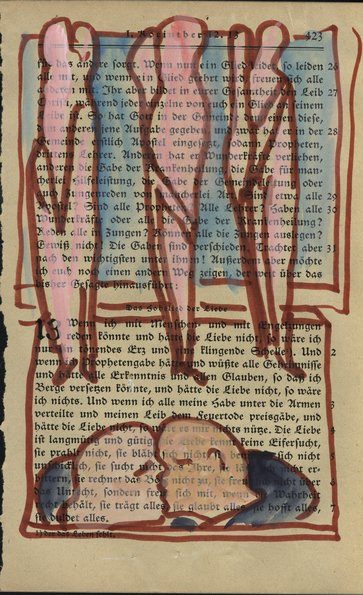 I. Korinther 12, 13 323
für das andre sorgt. Wenn nun ein Glied leidet, so leiden 26
alle mit, und wenn ein Glied geehrt wird, freuen sich alle
anderen mit. Ihr aber bildet in eurer Gesamtheit den Leib 27
Christi, während jeder einzelne von euch ein Glied an seinem
Leibe ist. So hat Gott in der Gemeinde dem einen diese,
dem anderen jene Aufgabe gegeben und zwar hat er in der 28
Gemeinde erstlich Apostel eingesetzt, sodann Propheten,
drittens Lehrer. Andern hat er Wunderkräfte verliehen,
anderen die Gabe der Krankenheilung, die Gabe für
Hilfsleistung, die der Leitung oder
auch Zungenreden von mancherlei Art. Sind etwa alle 29
Apostel? Sind alle Propheten? Alle Lehrer? Haben alle 30
Wunderkräfte oder alle die Gabe der Krankenheilung?
Reden alle in Zungen? Können alle die Zungen auslegen?
Gewiß nicht! Die Gaben sind verschieden. Trachtet aber 31
nach den wichtigsten unter ihnen! Außerdem aber möchte
ich euch noch einen andern Weg zeigen, der weit über das
bisher Gesagte hinausführt:
Das Hohelied der Liebe
13 Wenn ich mit Menschen- und mit Engelzungen
reden könnte und hätte die Liebe nicht, so wäre ich
nur ein tönendes Erz und eine klingende Schelle. Und 2
wenn ich Prophetengabe hätte und wüßte alle Geheimnisse
und hätte alle Erkenntnis und allen Glauben, so daß ich
Berge versetzen könnte, und hätte die Liebe nicht, so wäre
ich nichts. Und wenn ich alle meine Habe unter die Armen 3
verteilte und meinen Leib dem Feuertode preisgäbe, und
hätte die Liebe nicht, so wäre es mir nichts nütz. Die Liebe 4
ist langmütig und gütig, die Liebe kennt keine Eifersucht,
sie prahlt nicht, sie bläht sich nicht, sich nicht 5
sie sucht nicht das Ihre, sich nicht er-
bittern, sie rechnet das Böse nicht zu, sie freut sich nicht über 6
das Unrecht, sondern freut sich mit, wenn die Wahrheit
Recht behält, sie trägt alles, sie glaubt alles, sie hofft alles, 7
sie duldet alles.
¹) der das Leben